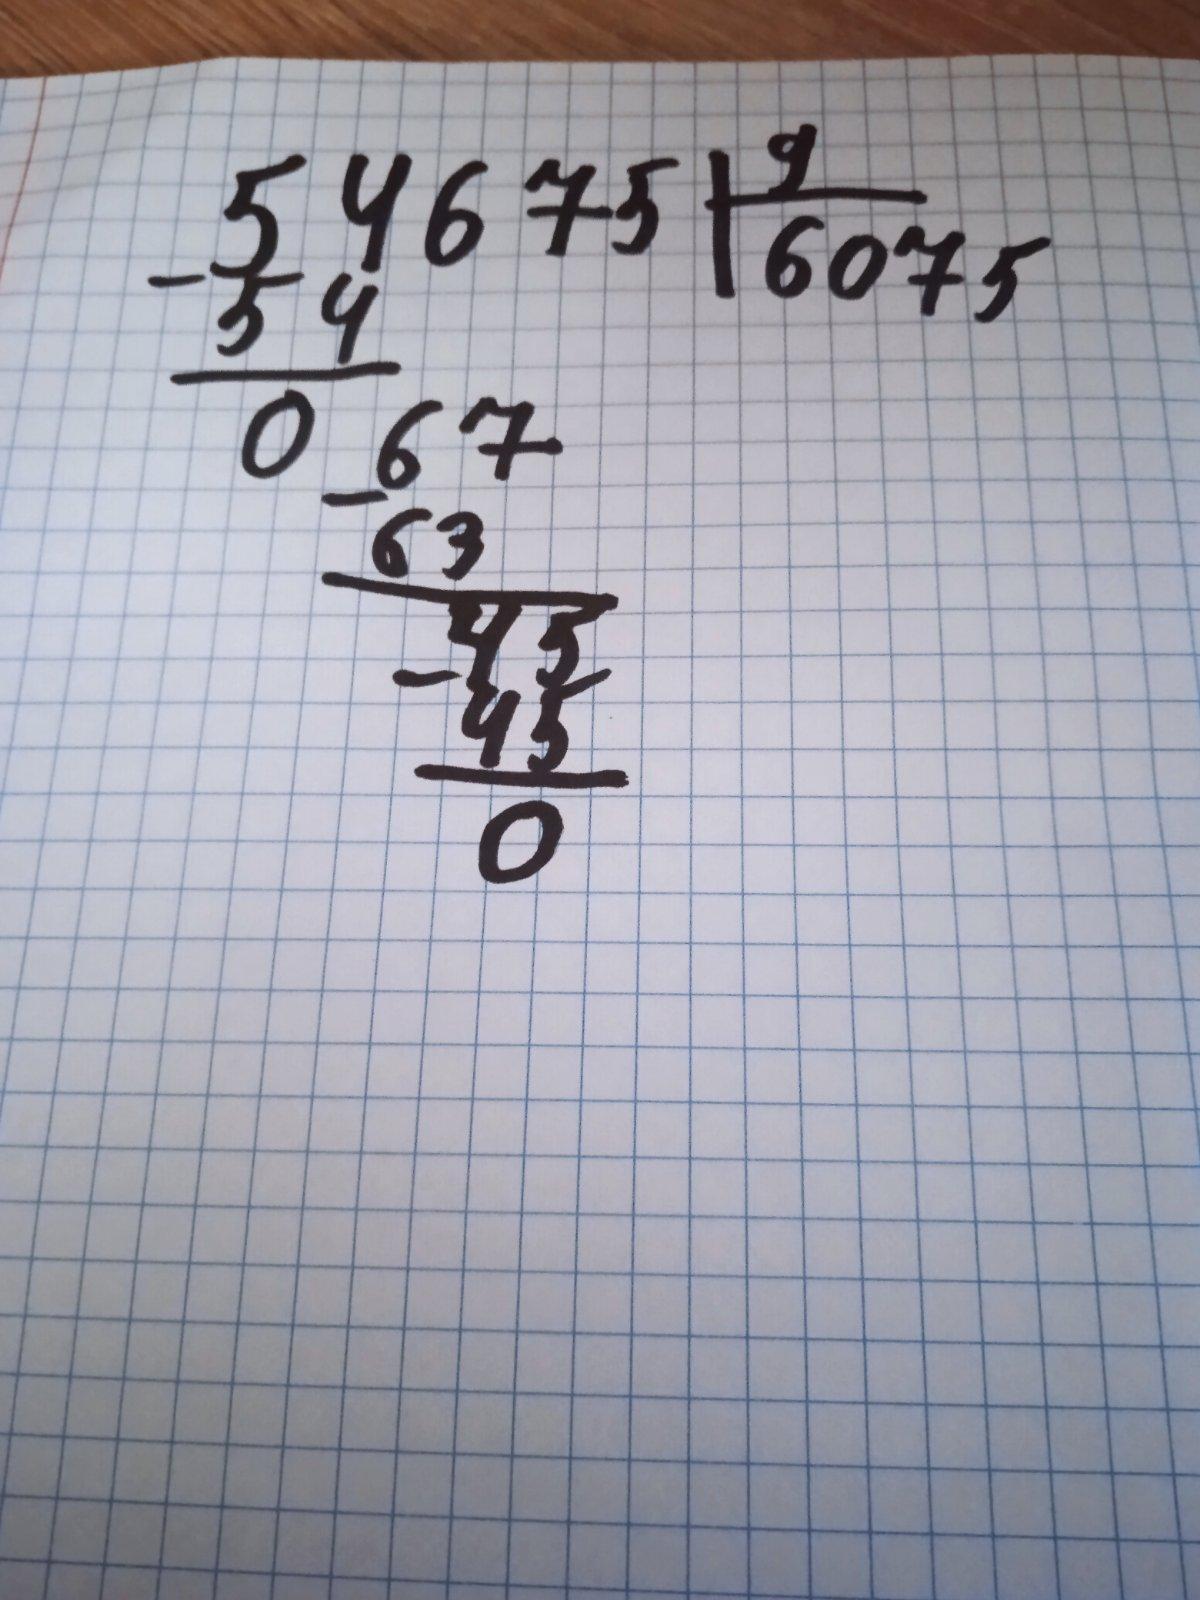 54675 9
- 6075
54
0 67
-
63
45
-
45
0